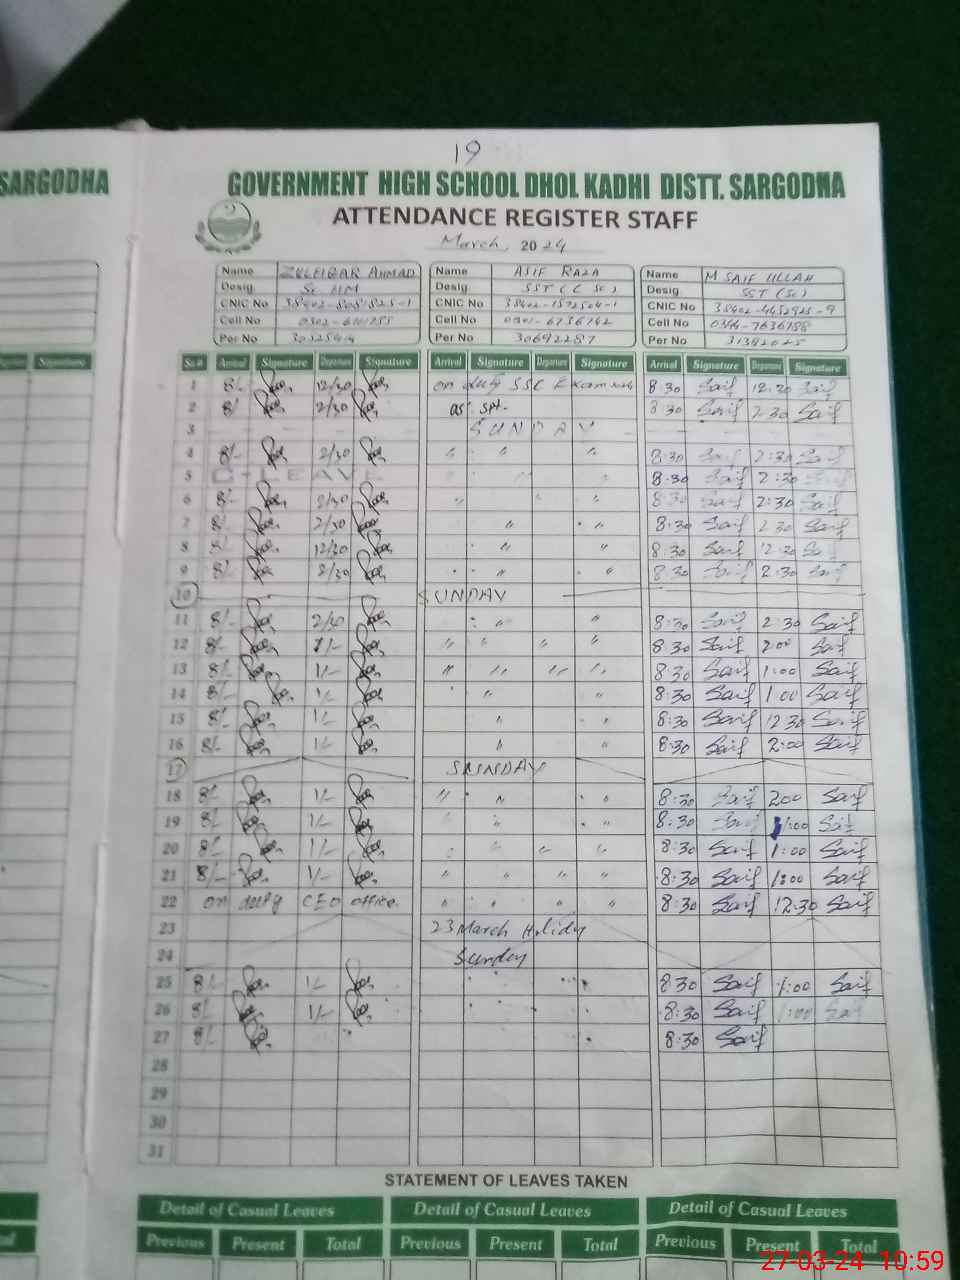 19
SARGODHA
GOVERNMENT HIGH SCHOOL DHOL KADHI DISTT. SARGODHA
ATTENDANCE REGISTER STAFF
March, 2024
Name ZULFIQAR AHMAD Name ASIF RAZA Name M SAIF ULLAH
Desig. Sr HM Desig SST (C Sc) Desig. SST (Sc)
CNIC No CNIC No CNIC No
Cell No Cell No Cell No
Per No Per No 30692287 Per No
Signature Sr.# Arrival Signature Departure Signature Arrival Signature Departure Signature Arrival Signature Departure Signature
1 8/- 12/30 on duty SSC Exam 8:30 Saif 12:30 Saif
2 8/- 2/30 8:30 Saif 2:30 Saif
3 SUNDAY
4 8/- 2/30 " " " 8:30 Saif 2:30 Saif
5 C-LEAVE " 8:30 Saif 2:30
6 8/- 2/30 " " " 8:30 Saif 2:30 Saif
7 8/- 2/30 " " 8:30 Saif 2:30 Saif
8 8/- 12/30 " " 8:30 Saif 12:30 Saif
9 8/- 2/30 " " 8:30 Saif 2:30 Saif
10 SUNDAY
11 8/- 2/30 " " 8:30 Saif 2:30 Saif
12 8/- 1/- " " " " 8:30 Saif 2:00 Saif
13 8/- 1/- " " " " 8:30 Saif 1:00 Saif
14 8/- 1/- " " 8:30 Saif 1:00 Saif
15 8/- 1/- " " 8:30 Saif 12:30 Saif
16 8/- 1/- " " 8:30 Saif 2:00 Saif
17 SUNDAY
18 8/- 1/- " " " 8:30 Saif 2:00 Saif
19 8/- 1/- " " 8:30 Saif 1:00 Saif
20 8/- 1/- " " " " 8:30 Saif 1:00 Saif
21 8/- 1/- " " " " 8:30 Saif 1:00 Saif
22 on duty CEO office. " " " " 8:30 Saif 12:30 Saif
23 23 March Holidy
24 Sunday
25 8/- 1/- 8:30 Saif 1:00 Saif
26 8/- 1/- 8:30 Saif 1:00 Saif
27 8/- 8:30 Saif
28
29
30
31
STATEMENT OF LEAVES TAKEN
Detail of Casual Leaves Detail of Casual Leaves Detail of Casual Leaves
Previous Present Total Previous Present Total Previous Present Total
27-03-24 10:59